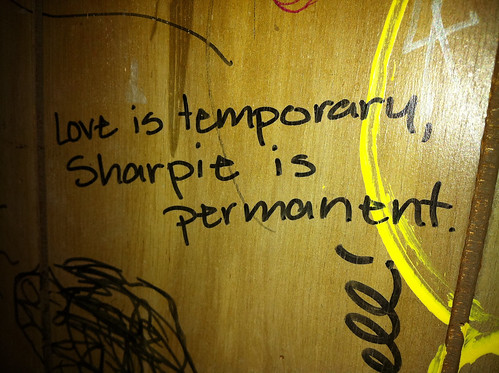 Love is temporary,
Sharpie is
permanent.